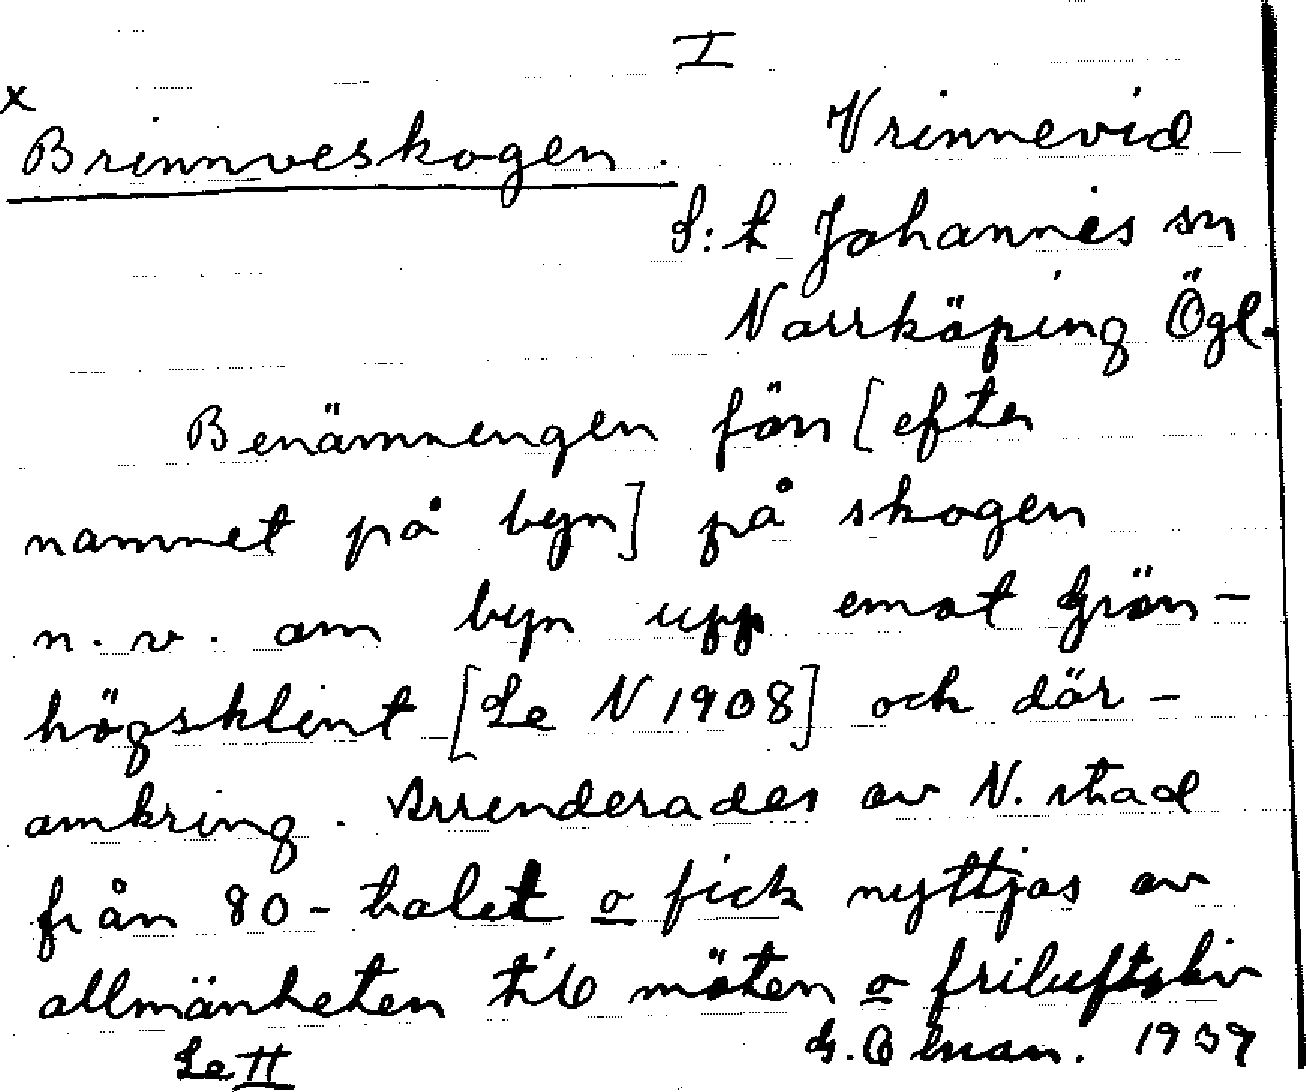 I
x
Brinnveskogen. Vrinnevid
S:t Johannes sn
Norrköping Ögl.
Benämningen förr [efter
namnet på byn] på skogen
n.v. om byn upp emot Grön-
högsklint [Se N 1908] och där-
omkring. Arrenderades av N. stad
från 80-talet o fick nyttjas av
allmänheten till möten o friluftsliv
Se II G. 1939